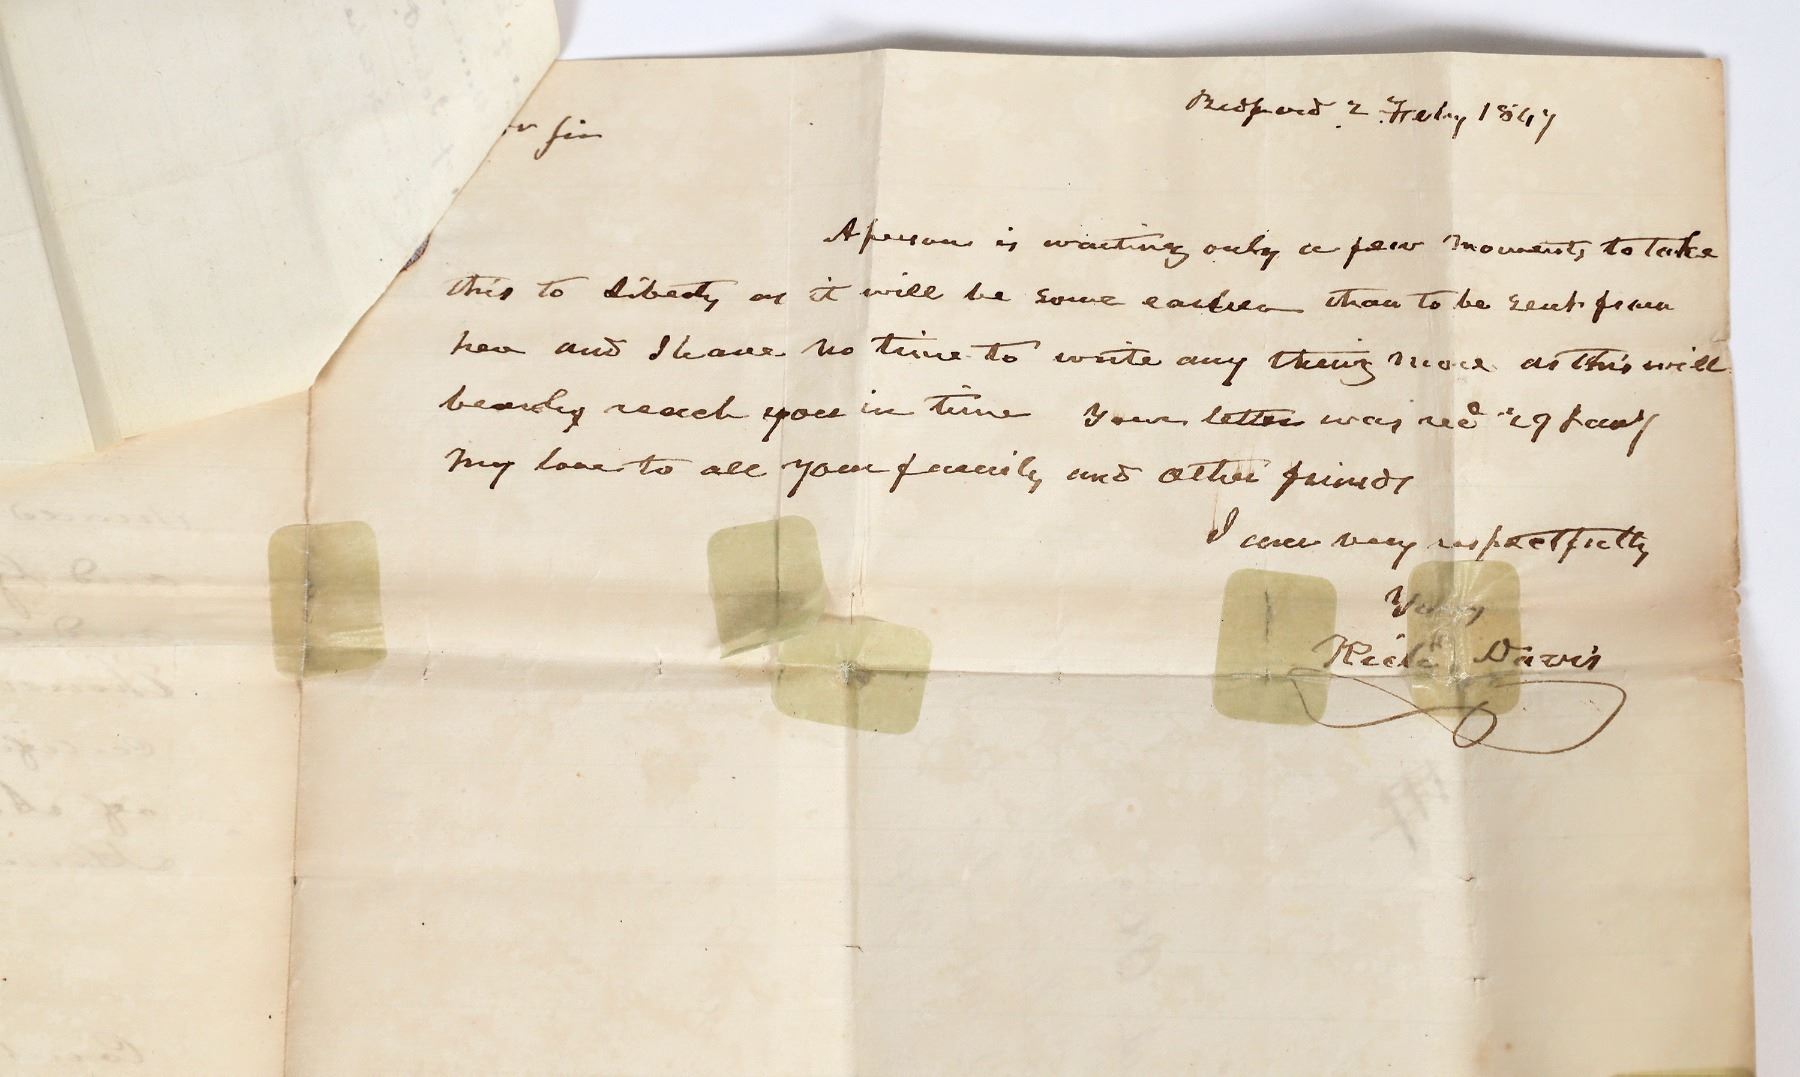 Bedford 2 Feby 1847
Sir
A person is waiting only a few moments to take
this to Liberty as it will be some earlier than to be sent from
here and I have no time to write any thing more as this will
bearly reach you in time Your letter was recd 29 Jany
My love to all your family and other friends
I am very respectfully
Yours
Richd Davis